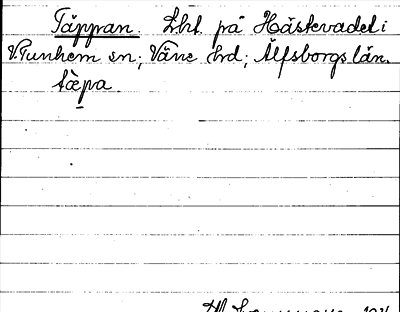 Täppan. Lht. på Hästevadet i
V. Tunhem sn; Väne hrd; Älfsborgs län.
tæpa